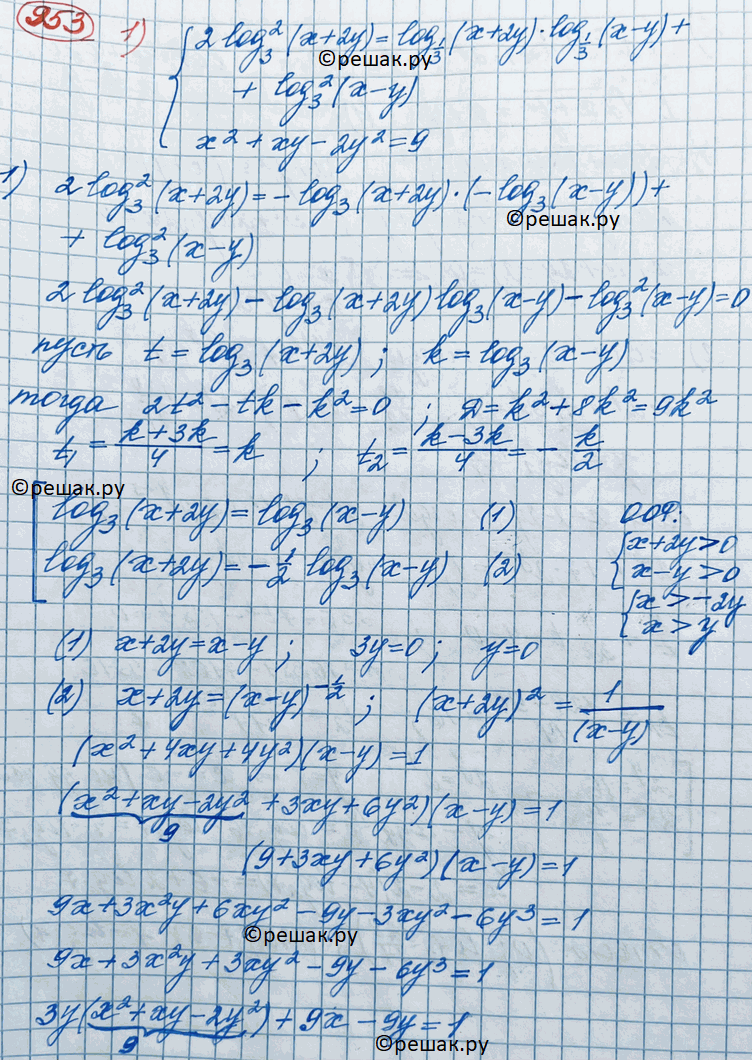 953 1) { 2 log₃²(x+2y) = log_{1/3}(x+2y)·log_{1/3}(x-y)+
©решак.ру
+ log₃²(x-y)
x²+xy-2y²=9
1) 2 log₃²(x+2y) = -log₃(x+2y)·(-log₃(x-y))+
©решак.ру
+ log₃²(x-y)
2 log₃²(x+2y) - log₃(x+2y) log₃(x-y) - log₃²(x-y)=0
пусть t = log₃(x+2y) ; k = log₃(x-y)
тогда 2t²-tk-k²=0 ; D=k²+8k²=9k²
t₁ = (k+3k)/4 = k ; t₂ = (k-3k)/4 = -k/2
©решак.ру
[ log₃(x+2y) = log₃(x-y) (1) ООФ:
log₃(x+2y) = -1/2 log₃(x-y) (2) { x+2y>0
x-y>0
{ x>-2y
x>y
(1) x+2y=x-y ; 3y=0 ; y=0
(2) x+2y=(x-y)^{-1/2} ; (x+2y)² = 1/(x-y)
(x²+4xy+4y²)(x-y)=1
(x²+xy-2y²+3xy+6y²)(x-y)=1
9
(9+3xy+6y²)(x-y)=1
9x+3x²y+6xy²-9y-3xy²-6y³=1
©решак.ру
9x+3x²y+3xy²-9y-6y³=1
3y(x²+xy-2y²)+9x-9y=1
9
©решак.ру